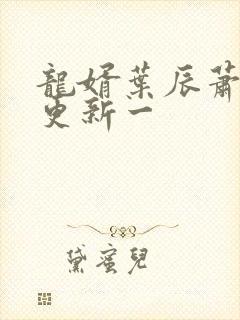 龍婿葉辰蕭
更新一
黛蜜兒